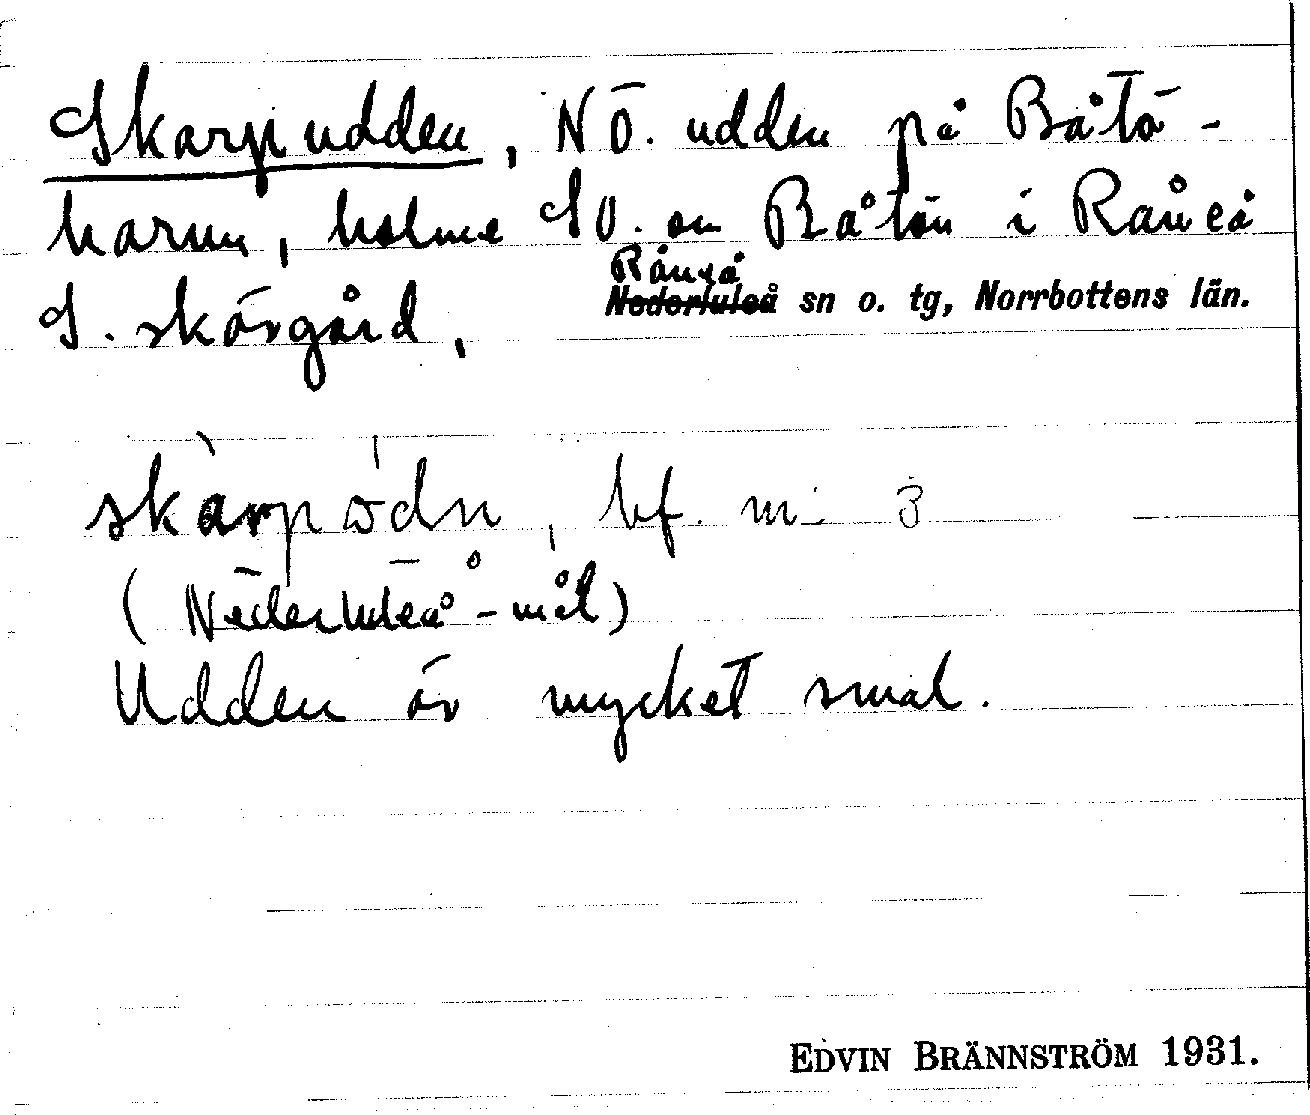 Skarpudden, NÖ. udden på Båtö-
harun, holme SO. om Båtön i Råneå
Råneå
S. skärgård, Nederluleå sn o. tg, Norrbottens län.
skàrpödn, bf. m. 3
(Nederluleå-mål)
Udden är mycket smal.
EDVIN BRÄNNSTRÖM 1931.